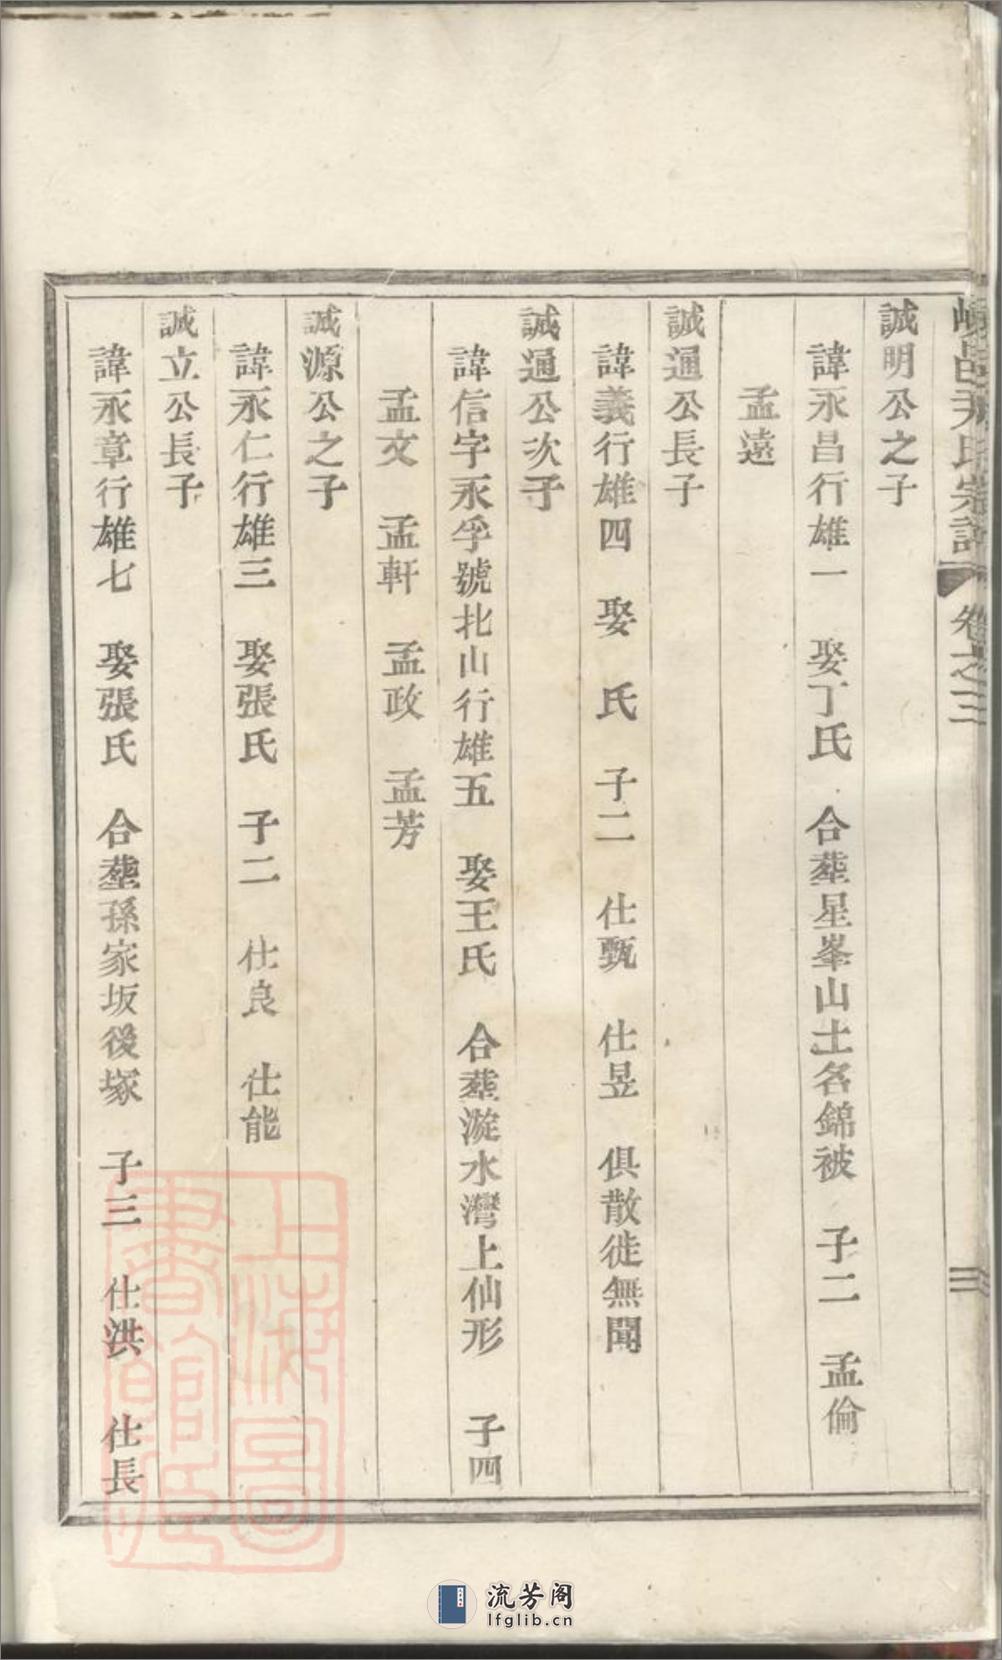 嵊邑尹氏宗譜 卷之三 三
誠明公之子
諱永昌行雄一 娶丁氏 合塟星峯山土名錦被 子二 孟倫
孟遠
誠通公長子
諱義行雄四 娶 氏 子二 仕甄 仕昱 俱散徙無聞
誠通公次子
諱信字永孚號北山行雄五 娶王氏 合塟漩水灣上仙形 子四
孟文 孟軒 孟政 孟芳
誠源公之子
諱永仁行雄三 娶張氏 子二 仕良 仕能
誠立公長子
諱永章行雄七 娶張氏 合塟孫家坂後塚 子三 仕洪 仕長
上海圖
書館藏
流芳阁
lfglib.cn